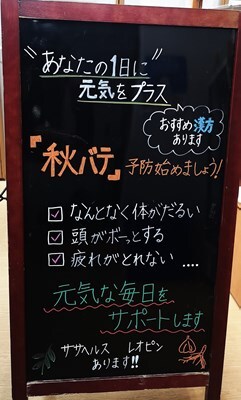 "あなたの1日に"
元気をプラス
おすすめ漢方
あります
『秋バテ』予防始めましょう!
☑ なんとなく体がだるい
☑ 頭がボーっとする
☑ 疲れがとれない ....
元気な毎日を
サポートします
ササヘルス レオピン
あります!!